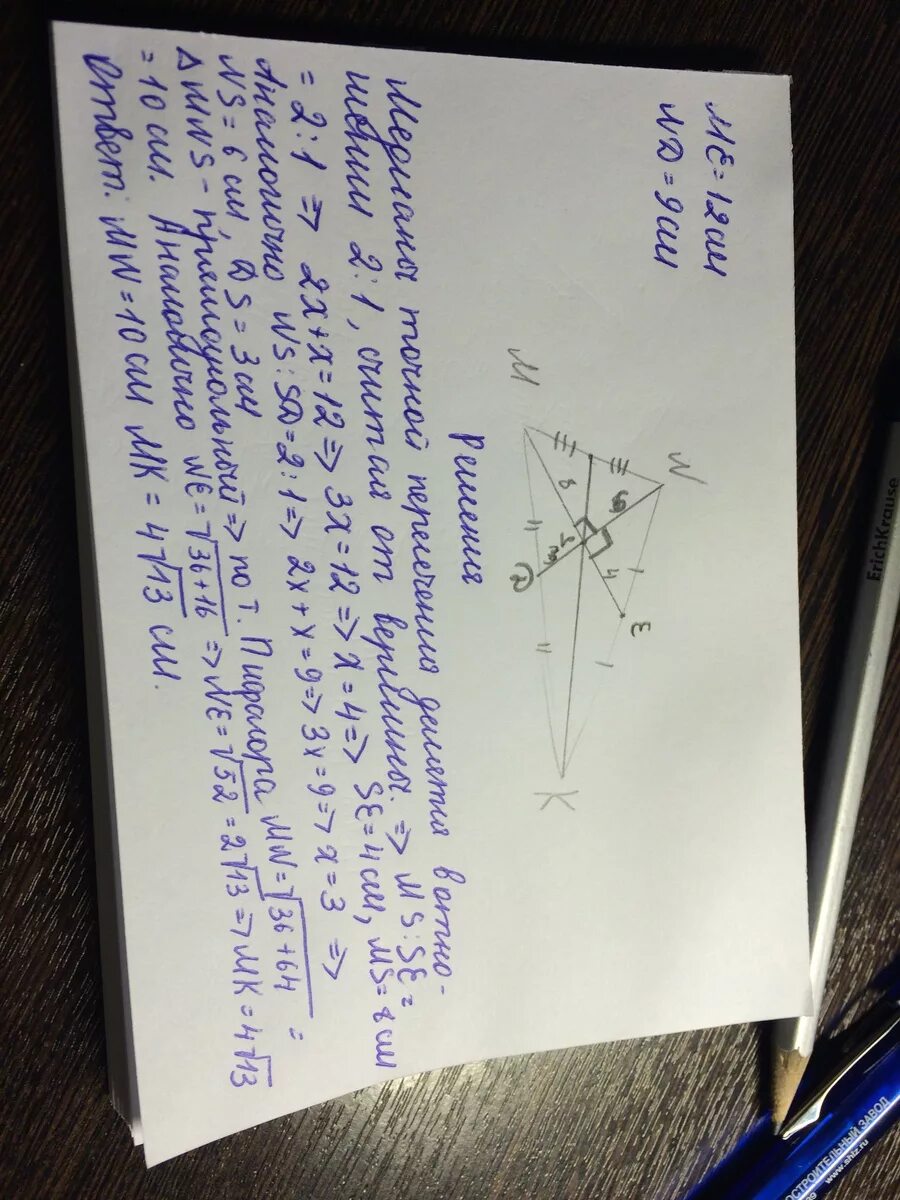 ME = 12 см
ND = 9 см
M
N
E
K
D
S
8
6
4
3
Решения
Медианы точкой пересечения делятся в отно-
шении 2:1, считая от вершины. => MS:SE =
= 2:1 => 2x+x=12 => 3x=12 => x=4 => SE=4см, MS=8см
Аналогично NS:SD=2:1 => 2x+x=9 => 3x=9 => x=3 =>
NS = 6 см, DS = 3 см
ΔMNS - прямоугольный => по т. Пифагора MN=√36+64 =
= 10 см. Аналогично NE=√36+16 => NE=√52=2√13 => MK=4√13
Ответ: MN=10 см MK=4√13 см.
ErichKrause
СТРОИТЕЛЬНЫЙ ЗАВОД
www.shlz.ru